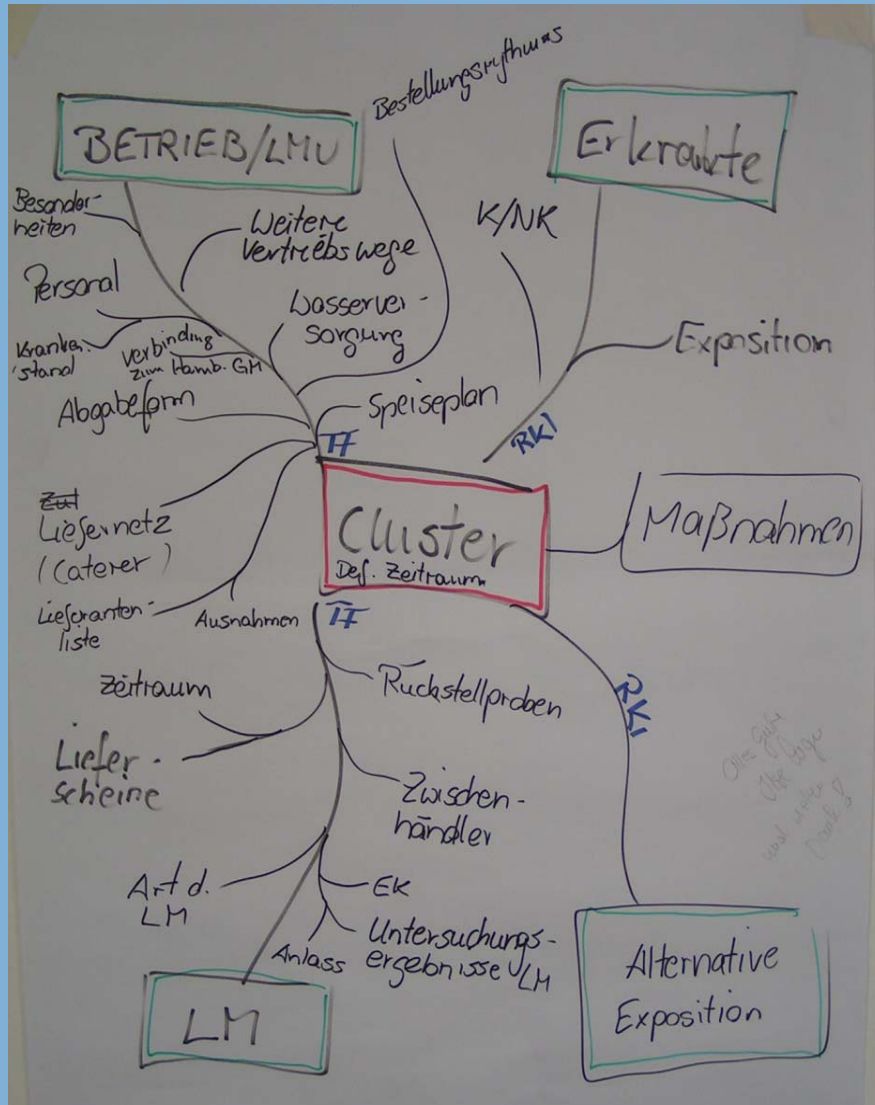 Bestellungsrythmus
BETRIEB/LMU
Erkrankte
Besonder-
heiten
Weitere
Vertriebswege
K/NK
Personal
Wasserver-
sorgung
Kranken-
stand
Verbindung
zum Hamb. GM
Exposition
Abgabeform
Speiseplan
TF
RKI
Zul
Liefernetz
(Caterer)
Cluster
Def. Zeitraum
Maßnahmen
Lieferanten-
liste
Ausnahmen
TF
Zeitraum
Rückstellproben
RKI
Liefer-
scheine
Zwischen-
händler
Art d.
LM
EK
Anlass
Untersuchungs-
ergebnisse LM
LM
Alternative
Exposition